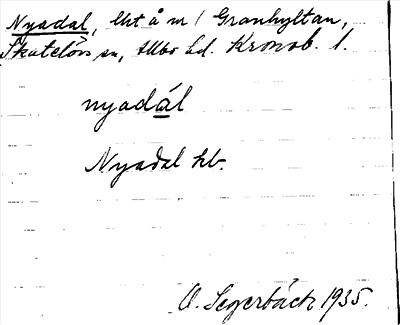 Nyadal, lht å m / Granhyltan,
Skatelövs sn, Allbo hd. Kronob. l.
nyadál
Nyadal hb.
O. Segerbäck 1935.